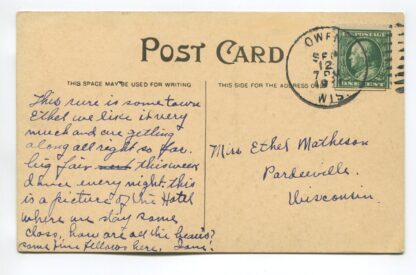 POST CARD
THIS SPACE MAY BE USED FOR WRITING
THIS SIDE FOR THE ADDRESS
OWEN
SEP
12
7 PM
WIS.
U.S. POSTAGE
ONE CENT
This sure is some town
Ethel we like it very
much and are getting
along all right so far.
big fair this week
dance every night. this
is a picture of the Hotel
where we stay some
class, how are all the beau's?
came fine fellows here.
Miss Ethel Matheson
Pardeeville
Wisconsin.